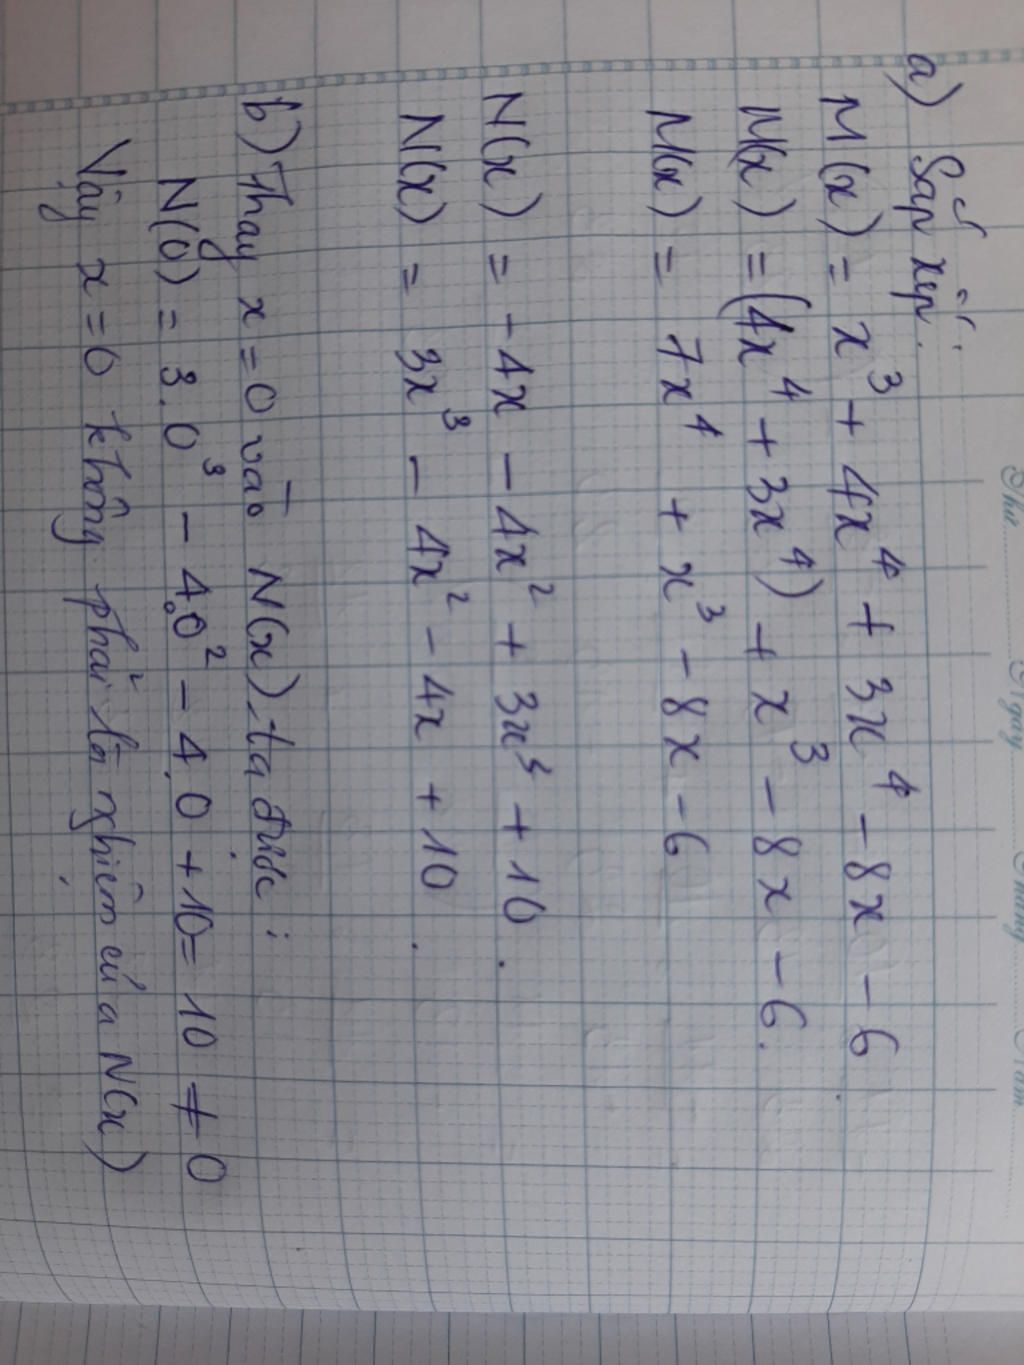 Thứ............Ngày............Tháng............Năm............
a) Sắp xếp:
M(x) = x³ + 4x⁴ + 3x⁴ - 8x - 6
M(x) = (4x⁴ + 3x⁴) + x³ - 8x - 6.
M(x) = 7x⁴ + x³ - 8x - 6
N(x) = - 4x - 4x² + 3x³ + 10.
N(x) = 3x³ - 4x² - 4x + 10.
b) Thay x = 0 vào N(x), ta được:
N(0) = 3.0³ - 4.0² - 4.0 + 10 = 10 ≠ 0
Vậy x = 0 không phải là nghiệm của N(x)